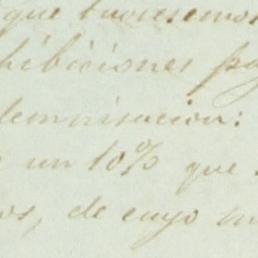 que tuviesemos
hibiciones pa
demnisacion:
un 10% que
os, de cuyo